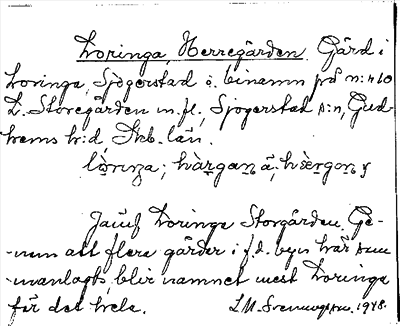 Loringa, Herregården. Gård i
Loringa, Sjögerstad s. binamn på n:r 10
L. Storegården m. fl., Sjögerstad s:n, Gud-
hems h:d, Skb. län.
Jämf Loringa Storgården. Ge-
-nom att flera gårdar i f. d. byn här sam
-manlagts, blir namnet mest Loringa
för det hela. 1948.